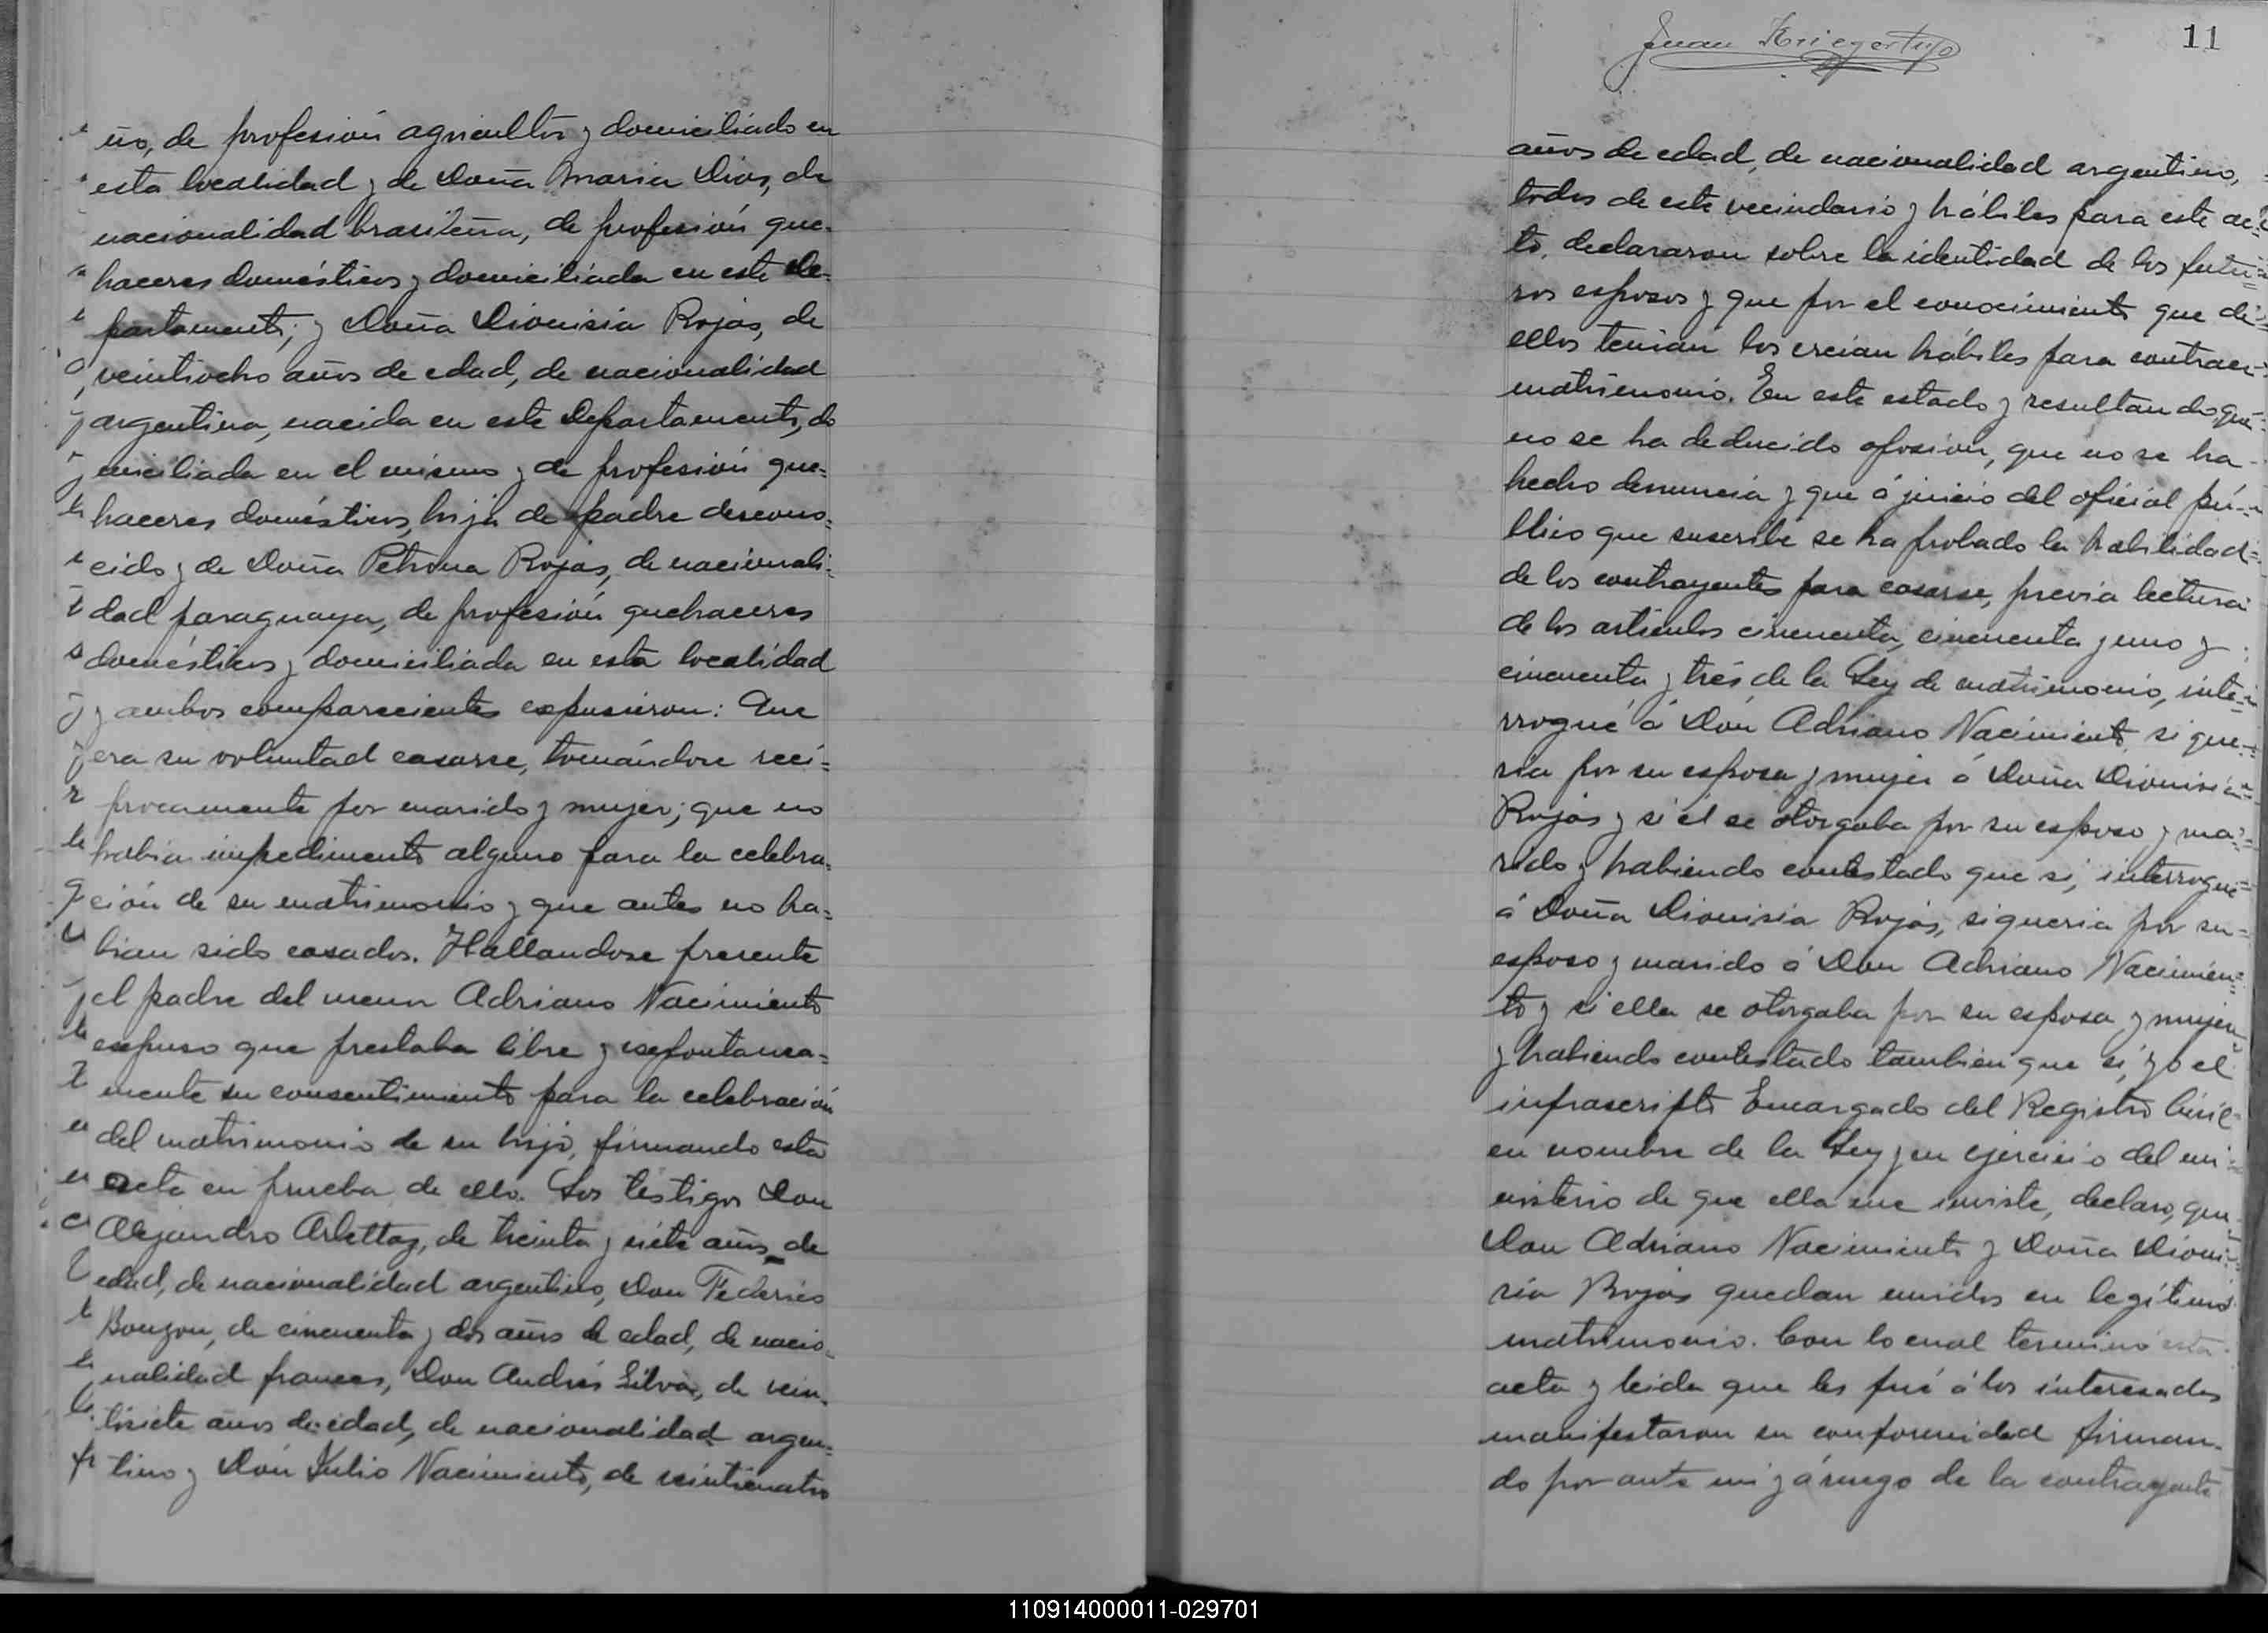 ño, de profesión agricultor y domiciliado en
esta localidad y de Doña Maria Dios, de
nacionalidad brasileña, de profesión que-
haceres domésticos y domiciliada en este De-
partamento; y Doña Dionisia Rojas, de
veintiocho años de edad, de nacionalidad
argentina, nacida en este Departamento, do
miciliada en el mismo y de profesión que-
haceres domésticos, hija de padre descono-
cido y de Doña Petrona Rojas, de nacionali-
dad paraguaya, de profesión quehaceres
domésticos y domiciliada en esta localidad
y ambos comparecientes expusieron: Que
era su voluntad casarse, tomándose recí-
procamente por marido y mujer; que no
habia impedimento alguno para la celebra-
ción de su matrimonio y que antes no ha-
bian sido casados. Hallandose presente
el padre del menor Adriano Nacimiento
expuso que prestaba libre y espontanea-
mente su consentimiento para la celebración
del matrimonio de su hijo, firmando esta
acta en prueba de ello. Los testigos Don
Alejandro Arlettaz, de treinta y siete años de
edad, de nacionalidad argentino, Don Federico
Bouzon, de cincuenta y dos años de edad, de nacio-
nalidad frances, Don Andrés Silva, de vein-
tisiete años de edad, de nacionalidad argen-
tino y Don Julio Nacimiento, de veinticuatro
Juan
11
años de edad, de nacionalidad argentino,
todos de este vecindario y hábiles para este ac-
to, declararon sobre la identidad de los futu-
ros esposos y que por el conocimiento que de
ellos tenian los creian hábiles para contraer
matrimonio. En este estado y resultando que
no se ha deducido oposión, que no se ha
hecho denuncia y que á juicio del oficial pú-
blico que suscribe se ha probado la habilidad
de los contrayentes para casarse, previa lectura
de los articulos cincuenta, cincuenta y uno y
cincuenta y trés de la Ley de matrimonio, inte-
rrogué á Don Adriano Nacimiento, si que-
ria por su esposa y mujer á Doña Dionisia
Rojas y si él se otorgaba por su esposo y ma-
rido y habiendo contestado que sí, interrogué
á Doña Dionisia Rojas, si queria por su
esposo y marido á Don Adriano Nacimien-
to y si ella se otorgaba por su esposa y mujer
y habiendo contestado tambien que sí, yo el
infrascripto Encargado del Registro Civil
en nombre de la Ley y en ejercicio del mi-
nisterio de que ella me inviste, declaro, que
Don Adriano Nacimiento y Doña Dioni-
sia Rojas quedan unidos en legítimo
matrimonio. Con lo cual terminó esta
acta y leida que les fué á los interesados
manifestaron su conformidad firman-
do por ante mi y á ruego de la contrayente
110914000011-029701